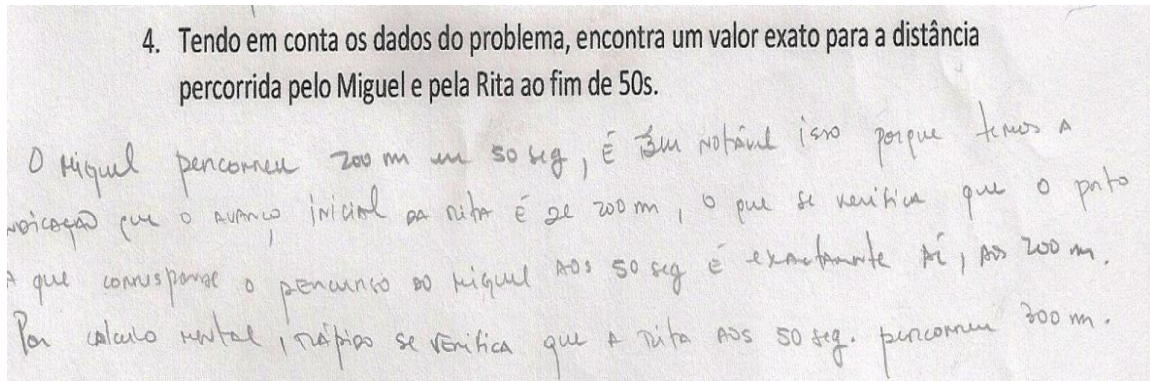 4. Tendo em conta os dados do problema, encontra um valor exato para a distância
percorrida pelo Miguel e pela Rita ao fim de 50s.
O Miguel percorreu 200 m em 50 seg, É Bem NOTÁVEL isso porque temos A
indicação que o AVANÇO iNicial DA Rita É de 200 m, o que se verifica que o ponto
A que corresponde o percurso do Miguel AOS 50 seg é exactamente Aí, AOS 200 m.
Por calculo mental, rápido se verifica que A Rita AOS 50 seg. percorreu 300 m.